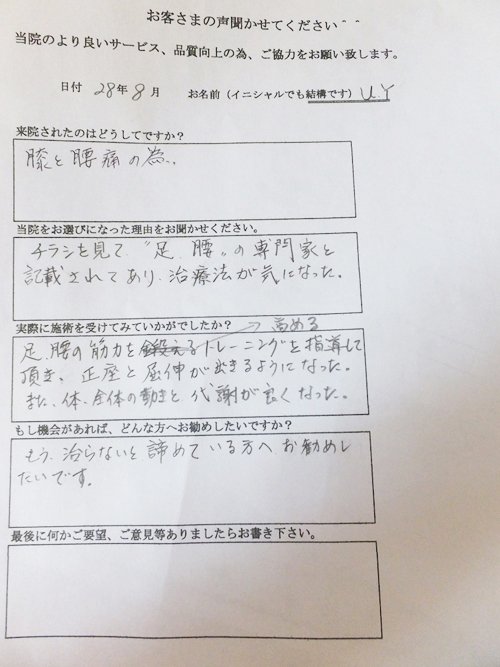 お客さまの声聞かせてください＾＾
当院のより良いサービス、品質向上の為、ご協力をお願い致します。
日付 28年8月 お名前（イニシャルでも結構です）U.Y
来院されたのはどうしてですか？
膝と腰痛の為、
当院をお選びになった理由をお聞かせください。
チラシを見て、"足、腰"の専門家と
記載されてあり、治療法が気になった。
実際に施術を受けてみていかがでしたか？ →高める
足、腰の筋力を鍛えるトレーニングを指導して
頂き、正座と屈伸が出きるようになった。
また、体、全体の動きと代謝が良くなった。
もし機会があれば、どんな方へお勧めしたいですか？
もう、治らないと諦めている方へお勧めし
たいです。
最後に何かご要望、ご意見等ありましたらお書き下さい。